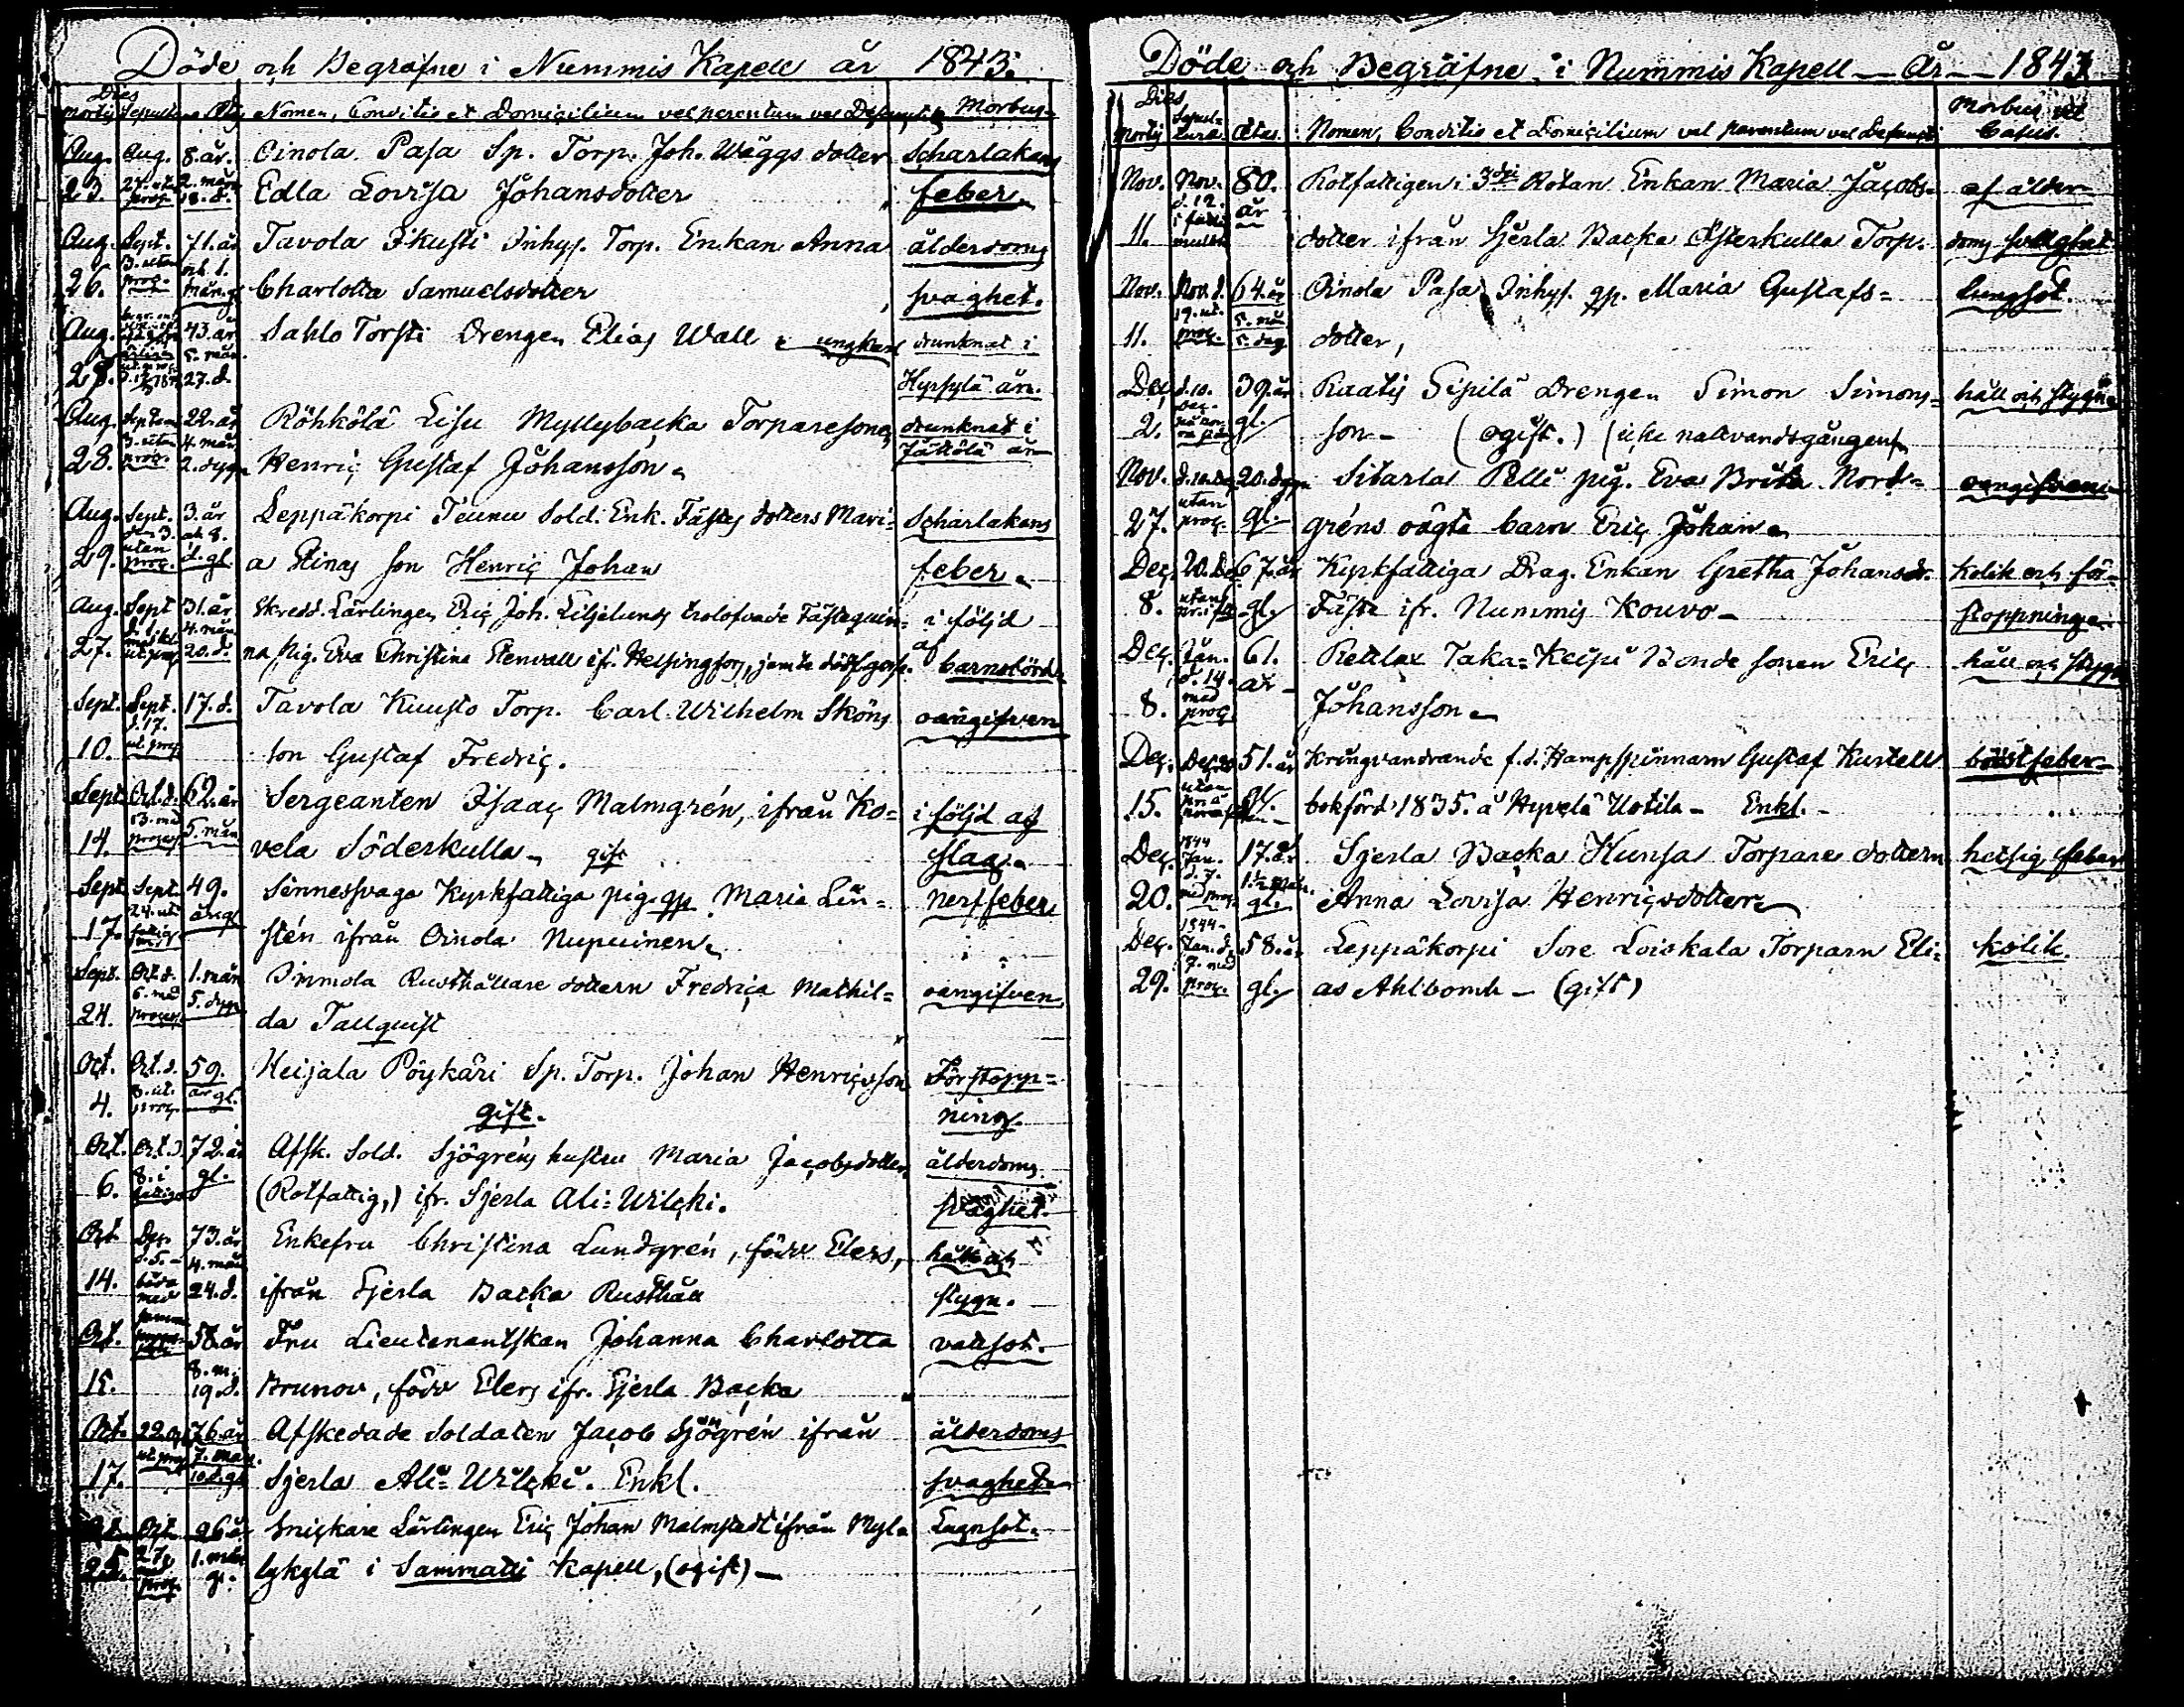 Döde och Begrafne i Nummis Kapell år 1843.
Dies
mortis Sepult. Ætas Nomen, Conditio et Domicilium vel parentum vel Defuncti Morbus
Aug. Aug. 8. år. Oinola Pasa Sp. Torp. Joh. Wäggs dotter Scharlakans
23. 27. utan proc. 2. mån. 18. d. Edla Lovisa Johansdotter feber.
Aug. Sept. 71. år Tavola Ikusti Inhys. Torp. Enkan Anna ålderdoms
26. 3. utan proc. och 1. mån. gl. Charlotta Samuelsdotter svaghet.
Aug. 43. år Sahlo Torsti Drengen Elias Wall ungkarl drunknat i
28. 5. mån. 27. d. Hyrsylä ån.
Aug. Septem 22. år Röhkölä Lisu Myllybacka Torparesonen drunknat i
28. 3. utan proc. 4. mån 2. dygn Henric Gustaf Johansson Jättölä ån
Aug. Sept. 3. år Leppäkorpi Teunu Sold. Enk. Fästes dotters Mari= Scharlakans
29. den 3. utan proc. och 8. d. gl. a Stinas son Henric Johan feber.
Aug. Sept 31. år Skredd. Lärlingen Eric Joh. Liljelunds trolofvade Fästeqvin= i följd
27. ut. proc. 4. mån 20. d. na Pig. Eva Christina Stenvall ifr. Helsingfors, jemte dödf. gosse. af barnsbörd
Sept. Sept. 17. d. Tavola Kuusto Torp. Carl Wilhelm Sköns oangifven
10. d. 17. ut. proc. son Gustaf Fredric.
Sept Oct. d. 62. år Sergeanten Isaac Malmgrén, ifrån Ko= i följd af
14. 13. med process 5. mån vela Söderkulla gift slag.
Sept Sept. 49. Sinnessvaga Kyrkfattiga pig. qp Maria Lin= nerffeber
17. 24. ut. år. gl stén ifrån Oinola Nupuinen
Sept. Oct. d. 1. mån Immola Rusthållare dottern Fredrica Mathil= oangifven
24. 6. med process 5. dygn da Tallquist
Oct. Oct. d. 59. Heijala Pöykäri Sp. Torp. Johan Henricsson Förstopp=
4. 8. ut. proc. år gl. gift. ning.
Oct. Oct. d 72. år Afsk. Sold. Sjögréns hustru Maria Jacobsdotter ålderdoms
6. 8. i gl. (Rotfattig,) ifr. Sjerla Ali=Wilcki. svaghet.
Oct Dec. 73. år Enkefru Christina Lundgrén, född Elers, håll och
14. d. 5. båda med 4. mån 24. d. ifrån Sjerla Backa Rusthåll stygn.
Oct. 58. år Fru Lieutenantskan Johanna Charlotta vattsot.
15. 8. m. 19. d. Brunow, född Elers ifr. Sjerla Backa
Oct. 22. 76. år Afskedade Soldaten Jacob Sjögrén ifrån ålderdoms
17. ut. proc 7. mån. 10 d. gl. Sjerla Ali=Wilcki. Enkl. svaghet
Oct Oct. 26. år Snickare Lärlingen Eric Johan Malmstedt ifrån Myl= Lungsot.
25. 27. med proc. 1. mån gl. lykylä i Sammatti Kapell, (ogift)
Döde och Begräfne i Nummis Kapell — År — 1843
Dies
Mortis Sepul= turæ. Ætas. Nomen, Conditio et Domicilium vel parentum vel Defuncti Morbus vel Casus.
Nov. Nov. 80. Rotfattigen i 3dje Rotan Enkan Maria Jacobs= af ålder=
11. d. 12. i år dotter ifrån Sjerla Backa Österkulla Torp. doms svaghet
Nov. Nov. d. 64. år Oinola Pasa Inhys. qp. Maria Gustafs= lungsot.
11. 19. ut. proc. 5. mån 5. dag dotter,
Dec d. 10. Dec. 39. år Raatis Sipilä Drengen Simon Simons= håll och stygn
2. gl. son — (ogift.) (icke nattvardsgången)
Nov. d. 10. Dec 20. dygn Sitarla Pelli pig. Eva Brita Nord= oangifven
27. utan proc. gl. gréns oägta barn Eric Johan
Dec. 20. Dec 67. år Kyrkfattiga Drag. Enkan Gretha Johansdr. kolik och för=
8. utan gl. Fäste ifr. Nummis Kouvo stoppning
Dec. Jan. 61. Retlax Taka=Keipi Bonde sonen Eric håll och stygn
8. d. 14. med proc år Johansson
Dec. Dec. 51. år Kringvandrande f. d. Hampspinnarn Gustaf Kustell bröstfeber
15. utan gl. bokförd 1835. å Hyvelä Uotila — Enkl.
Dec. 1844 Jan. 17. år Sjerla Backa Hunsa Torpare dottern hetsig feber
20. d. 7. med proc. 1½ mån. gl. Anna Lovisa Henricsdotter
Dec. 1844 Jan. d. 58. år Leppäkorpi Sore Loiskala Torparn Eli= kolik.
29. 7. med proc. gl. as Ahlbom — (gift)